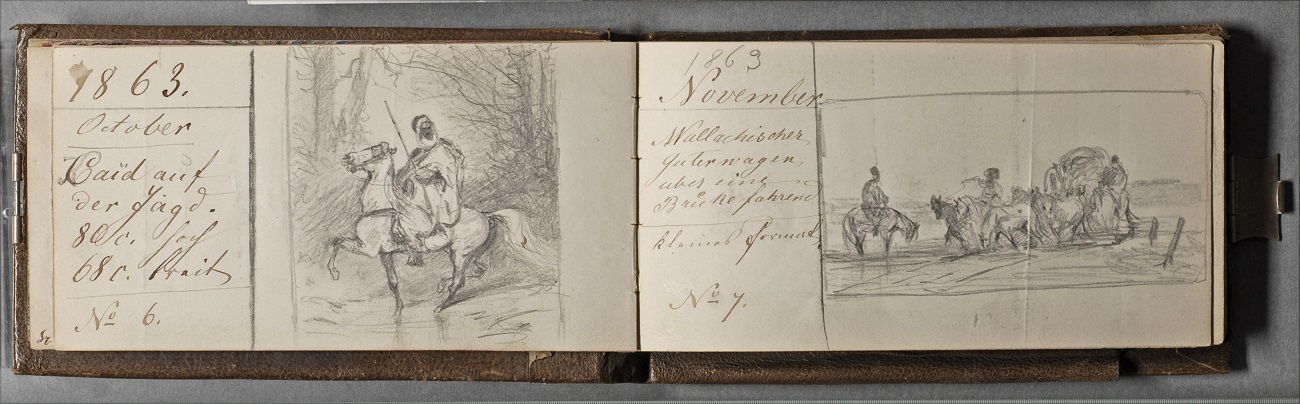 1863.
October
Caïd auf
der Jagd.
80 c. hoch
68 c. breit
No 6.
1863
November
Wallachischer
Güterwagen
über eine
Brücke fahrend
kleines Format,
No 7.